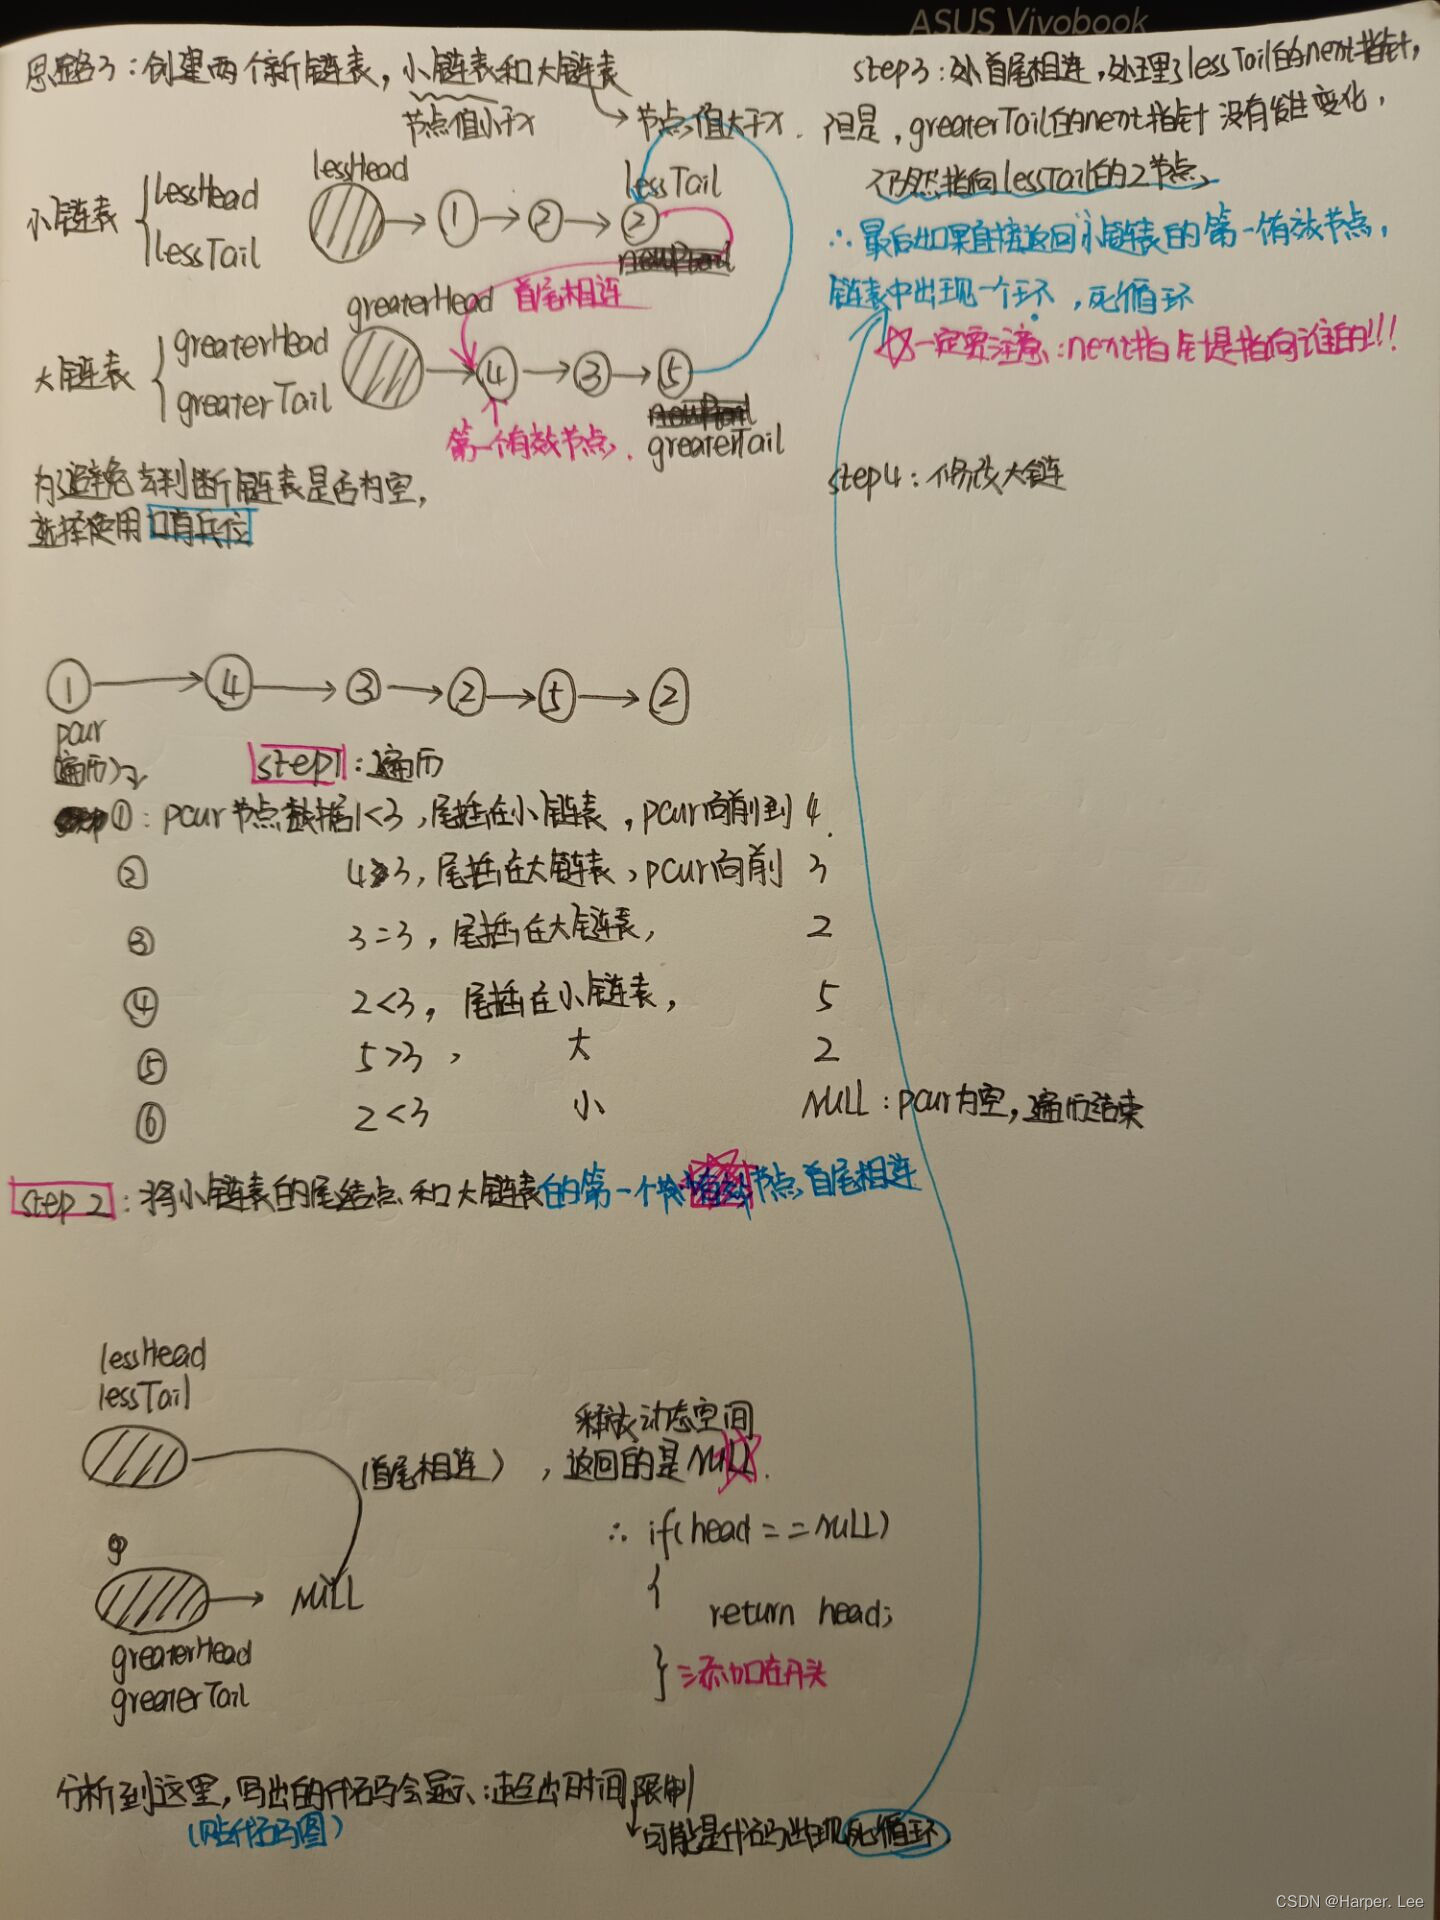 ASUS Vivobook
思路3：创建两个新链表，小链表和大链表
节点值小于x
节点值大于x.
小链表
lessHead
lessTail
lessHead
1
2
lessTail
2
首尾相连
大链表
greaterHead
greaterTail
greaterHead
4
3
5
第一个有效节点.
greaterTail
为了避免去判断链表是否为空，
选择使用口肖兵位
step3：处首尾相连，处理了lessTail的next指针，
但是，greaterTail的next指针没有发生变化，
仍然指向lessTail的2节点，
∴最后如果直接返回小链表的第一个有效节点，
链表中出现一个环，死循环
一定要注意：next指针是指向谁的!!!
step4：修改大链
1
4
3
2
5
2
pcur
遍历
step1：遍历
①：pcur节点数据1<3，尾插在小链表，pcur向前到4.
② 4>3，尾插在大链表，pcur向前 3
③ 3=3，尾插在大链表， 2
④ 2<3，尾插在小链表， 5
⑤ 5>3， 大 2
⑥ 2<3 小 NULL：pcur为空，遍历结束
step2：将小链表的尾结点和大链表的第一个有效节点首尾相连
lessHead
lessTail
（首尾相连），
释放动态空间
返回的是NULL.
NULL
greaterHead
greaterTail
∴ if(head==NULL)
{
return head;
}
添加在开头
分析到这里，写出的代码会显示：超出时间限制
（贴代码图）
可能是代码出现死循环
CSDN @Harper. Lee